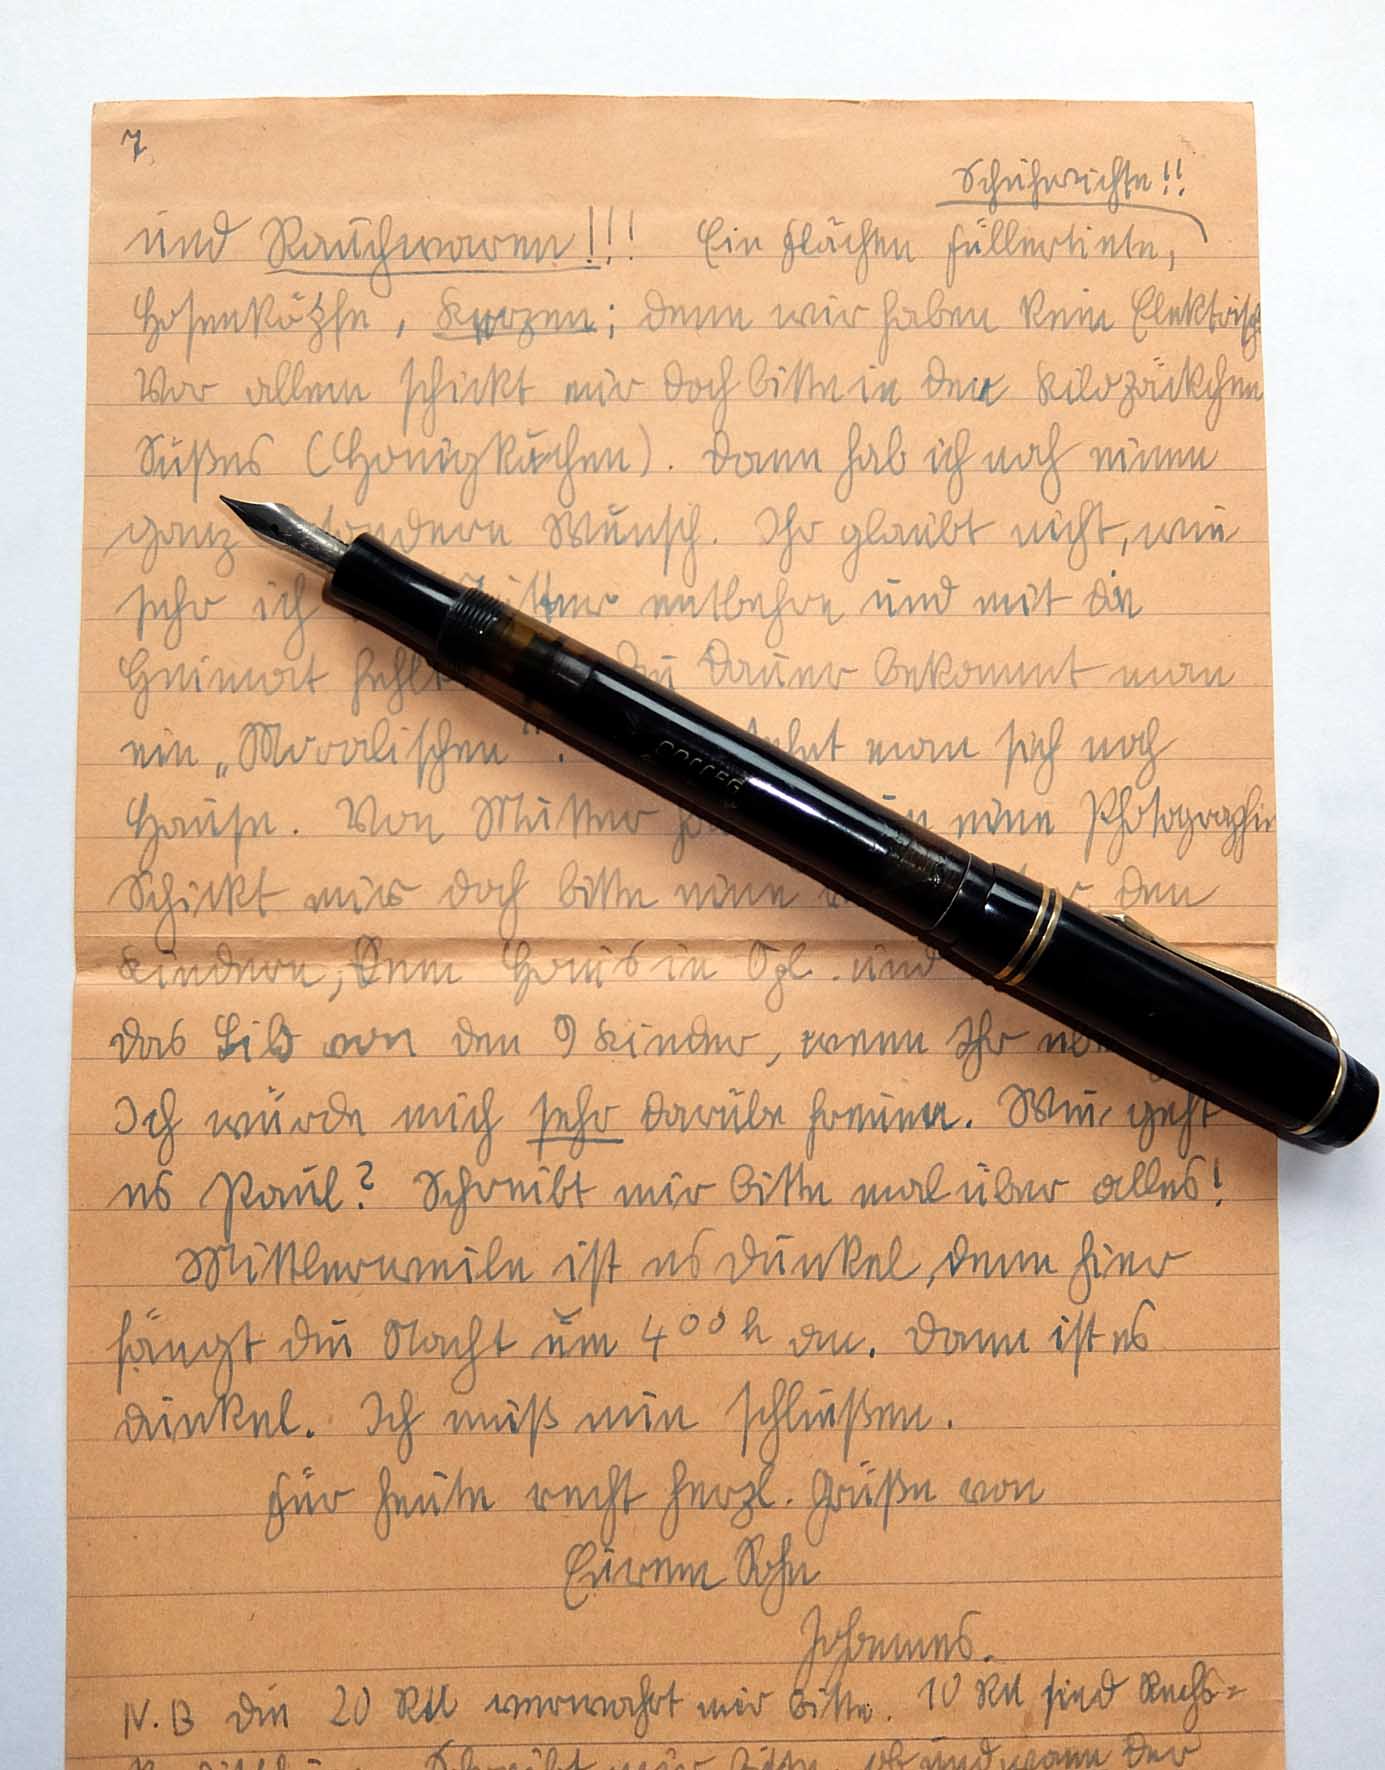 7
Schuhwichse!!
und Rauchwaren!!! Ein Fläschen Füllertinte,
Hosenknöpfe, Kerzen; denn wir haben kein Elektrisch
Vor allem schickt mir doch bitte in den Kilopäckchen
Süßes (Honigkuchen). Dann hab ich noch einen
ganz sondern Wunsch. Ihr glaubt nicht, wie
sehr ich entbehre und mit die
Heimat fehlt Dauer bekommt man
ein „Moralischen". sehnt man sich nach
Hause. Von Mutter eine Photographie
Schickt mir doch bitte eine den
Kindern, dem Haus in Ogl. und
das Bild von den 9 Kinder, wenn Ihr
Ich würde mich sehr darüber freuen. Wie geht
es Paul? Schreibt mir bitte mal über alles!
Mittlerweile ist es dunkel, denn hier
fängt die Nacht um 4 00 h an. Dann ist es
dunkel. Ich muß nun schließen.
Für heute recht herzl. Grüße von
Eurem Sohn
Johannes.
N.B die 20 RM verwahrt mir bitte. 10 RM sind Reichs-
Schreibt mir bitte, ob und wann der